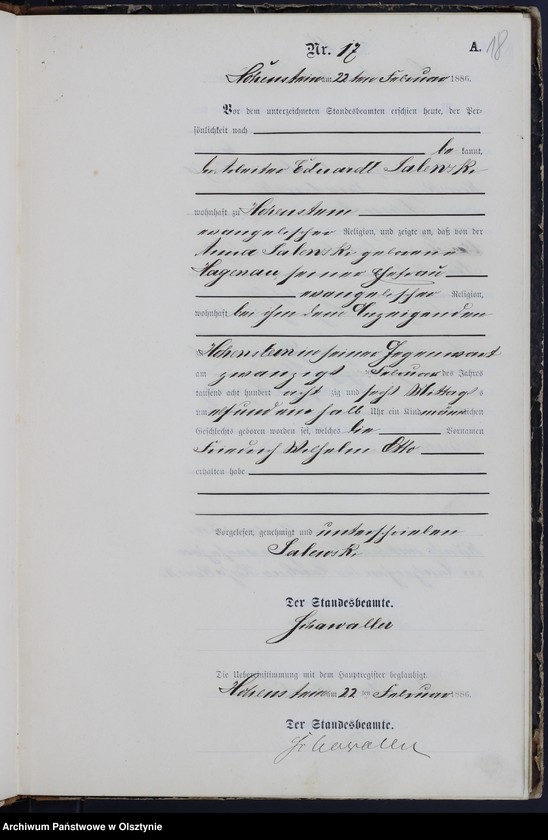 A. 18
Nr. 17
Hohenstein am 22 ten Februar 1886.
Vor dem unterzeichneten Standesbeamten erschien heute, der Per-
sönlichkeit nach
be kannt,
Eduardt Salewski
wohnhaft zu Hohenstein
evangelischer Religion, und zeigte an, daß von der
Anna Salewski geborene
Hagenau seiner Ehefrau
evangelischer Religion,
wohnhaft bei ihm dem Anzeigenden
zu Hohenstein in seiner Gegenwart
am zwanzigst en Februar des Jahres
tausend acht hundert acht zig und sechs Mittags
um elf und ein halb Uhr ein Kind männlichen
Geschlechts geboren worden sei, welches die Vornamen
Wilhelm Otto
erhalten habe
Vorgelesen, genehmigt und unterschrieben
Salewski
Der Standesbeamte.
Die Uebereinstimmung mit dem Hauptregister beglaubigt.
Hohenstein am 22 ten Februar 1886.
Der Standesbeamte.
Archiwum Państwowe w Olsztynie